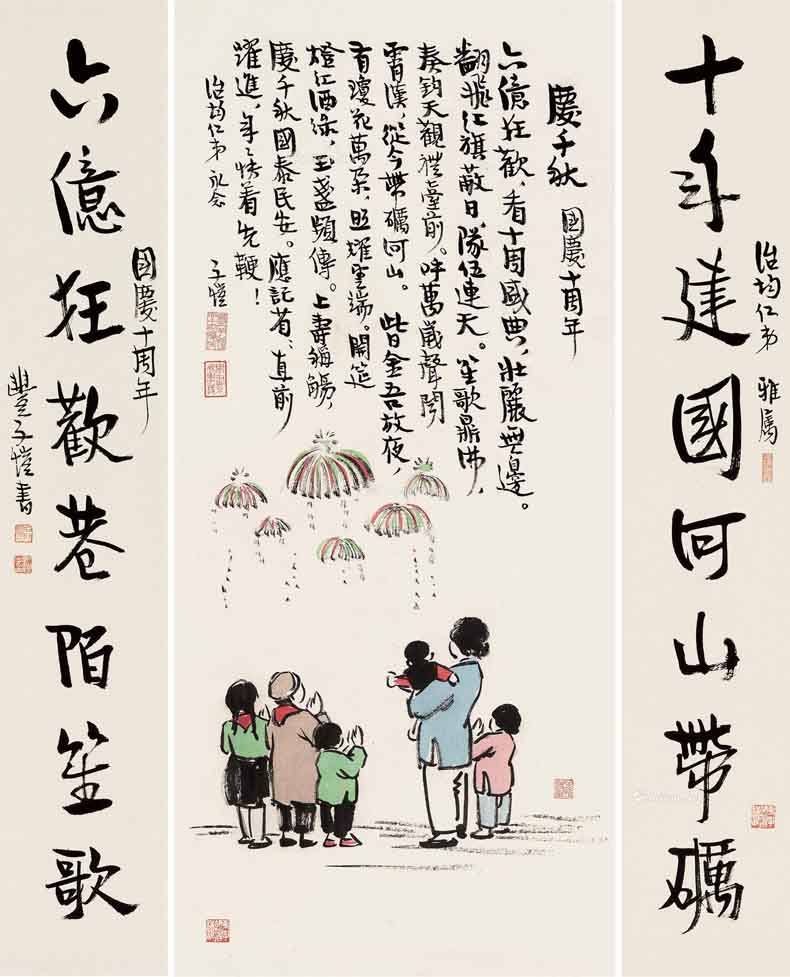 十年建國河山帶礪
治均仁弟 雅屬
慶千秋 國慶十周年
六億狂歡，看十周盛典，壯麗無邊。
翻飛紅旗蔽日，隊伍連天。笙歌鼎沸，
奏鈞天觀禮臺前。呼萬歲聲聞
霄漢，從今帶礪河山。此日金吾放夜，
有瓊花萬朵，照耀雲端。開筵
燈紅酒綠，玉盞頻傳。上壽稱觴，
慶千秋國泰民安。應記省，直前
躍進，年々快着先鞭！
治均仁弟 永念 子愷
六億狂歡巷陌笙歌
國慶十周年
豐子愷書